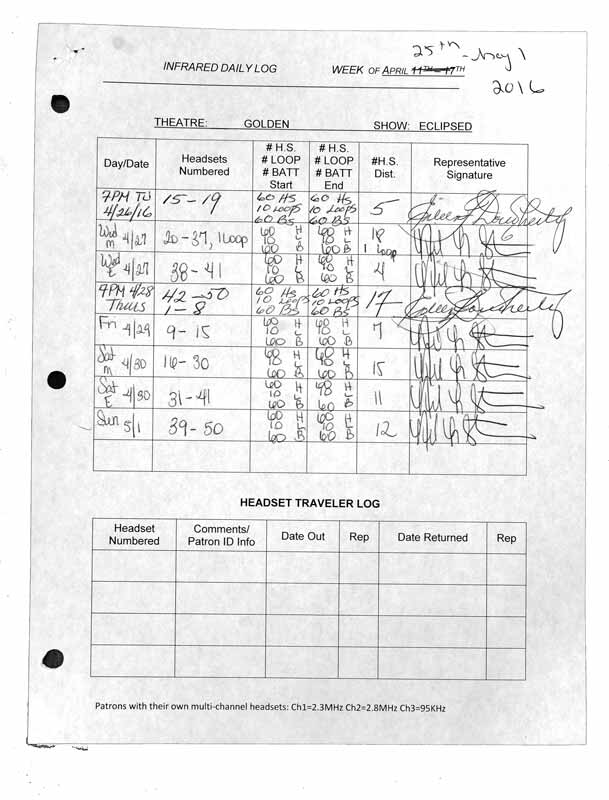 25th - May 1
INFRARED DAILY LOG WEEK OF APRIL 11TH – 17TH
2016
THEATRE: GOLDEN SHOW: ECLIPSED
Day/Date Headsets Numbered # H.S. # LOOP # BATT Start # H.S. # LOOP # BATT End #H.S. Dist. Representative Signature
7PM TU 4/26/16 15-19 60 HS 10 Loops 60 BS 60 HS 10 Loops 60 BS 5 Eileen Dougherty
Wed M 4/27 20-37, 1 Loop 60 H 10 L 60 B 60 H 10 L 60 B 18 1 Loop
Wed E 4/27 38-41 60 H 10 L 60 B 60 H 10 L 60 B 4
7PM 4/28 Thurs 42-50 1-8 60 HS 10 Loops 60 BS 60 HS 10 Loops 60 BS 17 Eileen Dougherty
Fri 4/29 9-15 60 H 10 L 60 B 60 H 10 L 60 B 7
Sat M 4/30 16-30 60 H 10 L 60 B 60 H 10 L 60 B 15
Sat E 4/30 31-41 60 H 10 L 60 B 60 H 10 L 60 B 11
Sun 5/1 39-50 60 H 10 L 60 B 60 H 10 L 60 B 12
HEADSET TRAVELER LOG
Headset Numbered Comments/ Patron ID Info Date Out Rep Date Returned Rep
Patrons with their own multi-channel headsets: Ch1=2.3MHz Ch2=2.8MHz Ch3=95KHz